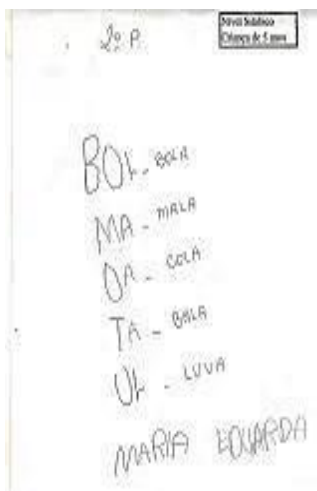 2º P.
Nível Silábico
Criança de 5 anos
BOL - BOLA
MA - MALA
OA - COLA
TA - BALA
UL - LUVA
MARIA EDUARDA